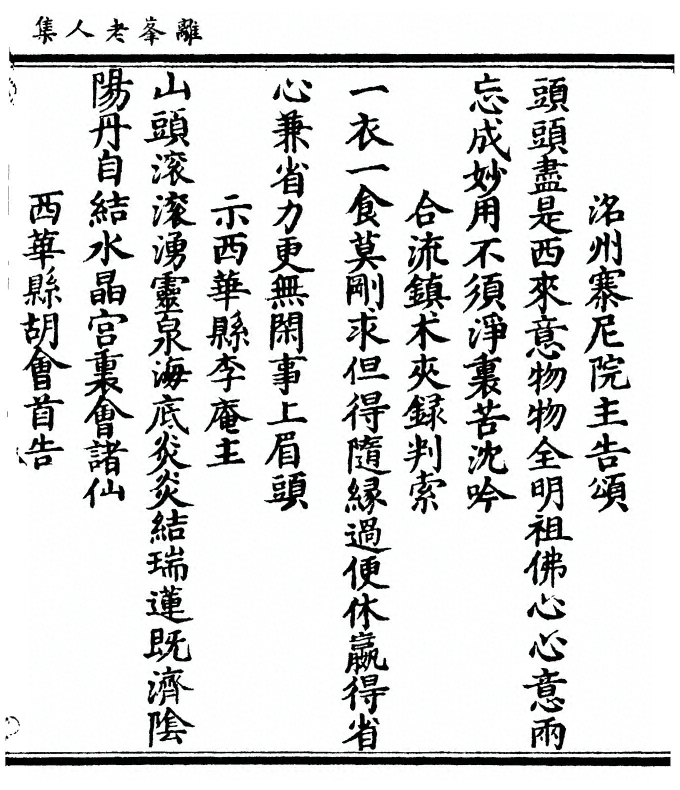 離峯老人集
洺州寨尼院主告頌
頭頭盡是西來意物物全明祖佛心心意兩
忘成妙用不須淨裏苦沈吟
合流鎮朮夾録判索
一衣一食莫剛求但得隨緣過便休贏得省
心兼省力更無閑事上眉頭
示西華縣李庵主
山頭滚滚湧靈泉海底炎炎結瑞蓮既濟陰
陽丹自結水晶宮裏會諸仙
西華縣胡會首告